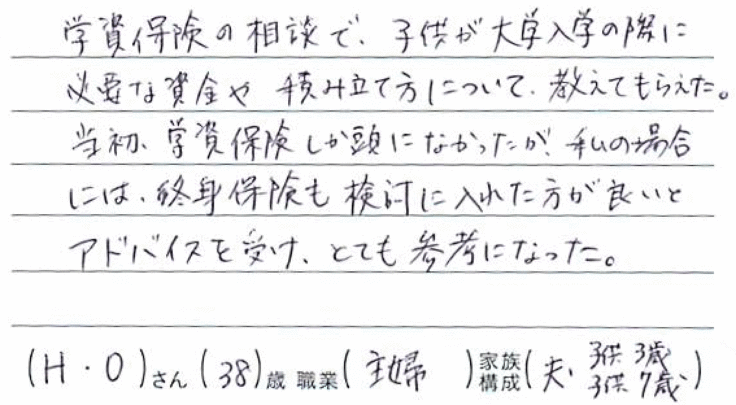 学資保険の相談で、子供が大学入学の際に
必要な資金や積み立て方について、教えてもらえた。
当初、学資保険しか頭になかったが、私の場合
には、終身保険も検討に入れた方が良いと
アドバイスを受け、とても参考になった。
(H・O)さん(38)歳 職業(主婦)家族構成(夫、子供3歳 子供7歳)